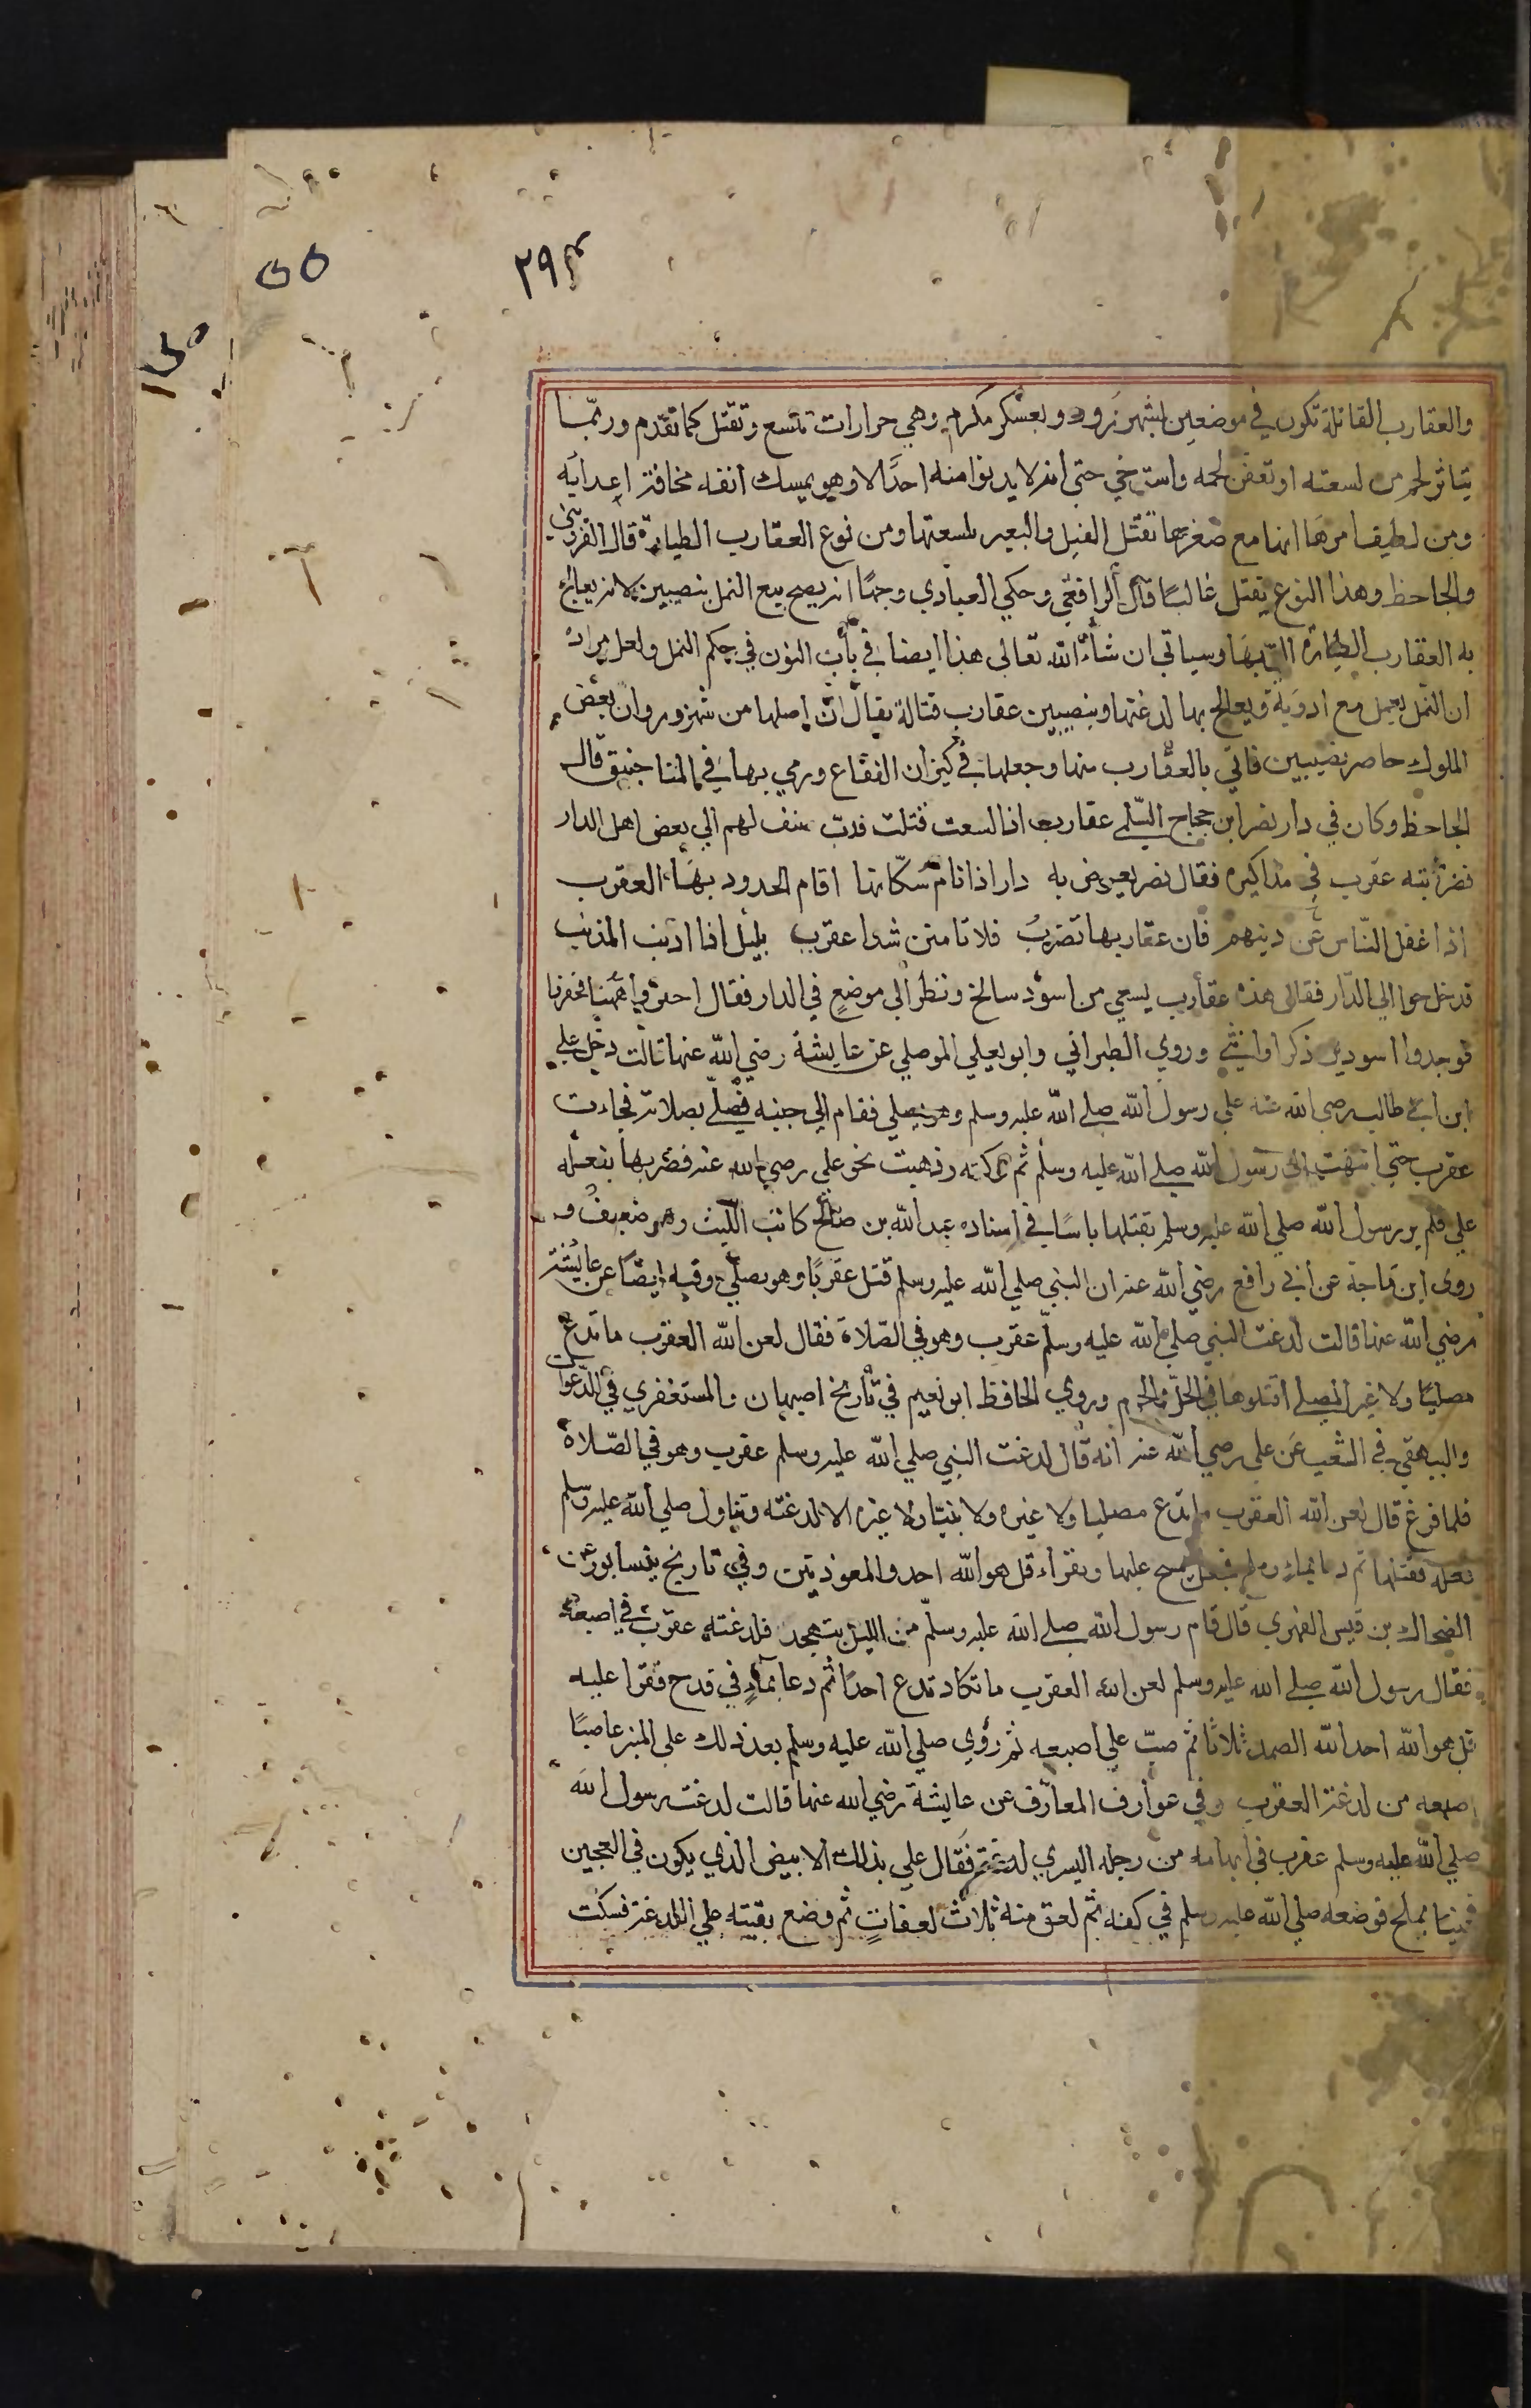 ٢٩٣
٥٥
والعقارب القاتلة تكون في موضعين بشهرزور وبعسكر مكرم وهي جرارات تلسع وتقتل كما تقدم وربما
يتناثر لحم من لسعته او تعفن لحمه واسترخي حتى انه لا يدنوا منه احدًا الا وهو يمسك انفه مخافة اعدايه
ومن لطيف امرها انها مع صغرها تقتل الفيل والبعير بلسعتها ومن نوع العقارب الطيارة قال القزويني
والجاحظ وهذا النوع يقتل غالبًا قال الرافعي وحكي العبادي وجهًا انه يصح بيع النمل بنصيبين لانه يعالج
به العقارب الطيارة التي بها وسياتي ان شاء الله تعالى هذا ايضا في باب النون في حكم النمل ولعل مراده
ان النمل يعمل مع ادوية ويعالج بها لدغتها وبنصيبين عقارب قتالة يقال ان اصلها من شهرزور وان بعض
الملوك حاصر نصيبين فاتي بالعقارب منها وجعلها في كيزان الفقاع ورمي بها في المناجنيق قال
الجاحظ وكان في دار نصر ابن حجاج السلمي عقارب اذا لسعت قتلت فدب ضيف لهم الي بعض اهل الدار
فضربته عقرب في مذاكيره فقال نصر يعرض به دار اذا نام سكانها اقام الحدود بها العقرب
اذا غفل الناس عن دينهم فان عقاربها تضرب فلا تامنن شدا عقرب بليل اذا اذنب المذنب
قدخل حوا الي الدار فقال هذه عقارب يسعي من اسود سالخ ونظر الى موضع في الدار فقال احفروا ههنا فحفرنا
فوجدوا اسودين ذكرا وانثى وروي الطبراني وابو يعلي الموصلي عن عايشة رضي الله عنها قالت دخل علي
ابن ابي طالب رضي الله عنه علي رسول الله صلى الله عليه وسلم وهو يصلي فقام الي جنبه فصلى بصلاته فجاءت
عقرب حتي انتهت الى رسول الله صلى الله عليه وسلم ثم تركته وذهبت نحو علي رضي الله عنه فضربها بنعله
علي فلم ير رسول الله صلي الله عليه وسلم بقتلها باسًا في اسناده عبد الله بن صالح كاتب الليث وهو ضعيف و
روى ابن ماجة عن ابي رافع رضي الله عنه ان النبي صلي الله عليه وسلم قتل عقربًا وهو يصلي وفيه ايضًا عن عايشة
رضي الله عنها قالت لدغت النبي صلي الله عليه وسلم عقرب وهو في الصلاة فقال لعن الله العقرب ما تدع
مصليًا ولا غير المصلي اقتلوها في الحل والحرم وروي الحافظ ابو نعيم في تاريخ اصبهان والمستغفري في الدعوات
والبيهقي في الشعب عن علي رضي الله عنه انه قال لدغت النبي صلي الله عليه وسلم عقرب وهو في الصلاة
فلما فرغ قال لعن الله العقرب ما تدع مصليا ولا غيره ولا نبيًا ولا غيره الا لدغته وتناول صلي الله عليه وسلم
نعله فقتلها ثم دعا بماء وملح فجعل يمسح عليها ويقراء قل هو الله احد والمعوذتين وفي تاريخ نيسابور عن
الضحاك بن قيس الفهري قال قام رسول الله صلى الله عليه وسلم من الليل يتهجد فلدغته عقرب في اصبعه
فقال رسول الله صلى الله عليه وسلم لعن الله العقرب ما تكاد تدع احدًا ثم دعا بماء في قدح فقرا عليه
قل هو الله احد الله الصمد ثلاثا ثم صب علي اصبعه ثم رؤي صلي الله عليه وسلم بعد ذلك على المنبر عاصبًا
اصبعه من لدغة العقرب وفي عوارف المعارف عن عايشة رضي الله عنها قالت لدغت رسول الله
صلي الله عليه وسلم عقرب في ابهامه من رجله اليسري لدغة فقال علي بذلك الابيض الذي يكون في العجين
فجينا بملح فوضعه صلي الله عليه وسلم في كفه ثم لعق منه ثلاث لعقاتٍ ثم وضع بقيته علي اللدغة فسكنت